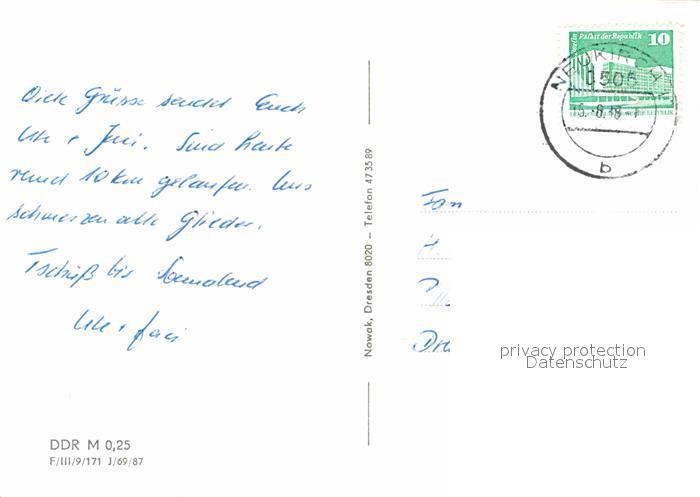 Viele Grüsse sendet Euch
Ute + Jani. Sind heute
rund 10 km gelaufen. Uns
schmerzen alle Glieder.
Tschüß bis Sonnabend
Ute + Jani
DDR M 0,25
F/III/9/171 J/69/87
Nowak, Dresden 8020 – Telefon 47 35 89
Berlin Palast der Republik 10
NEUKIR
8505
b
Fam
privacy protection
Datenschutz